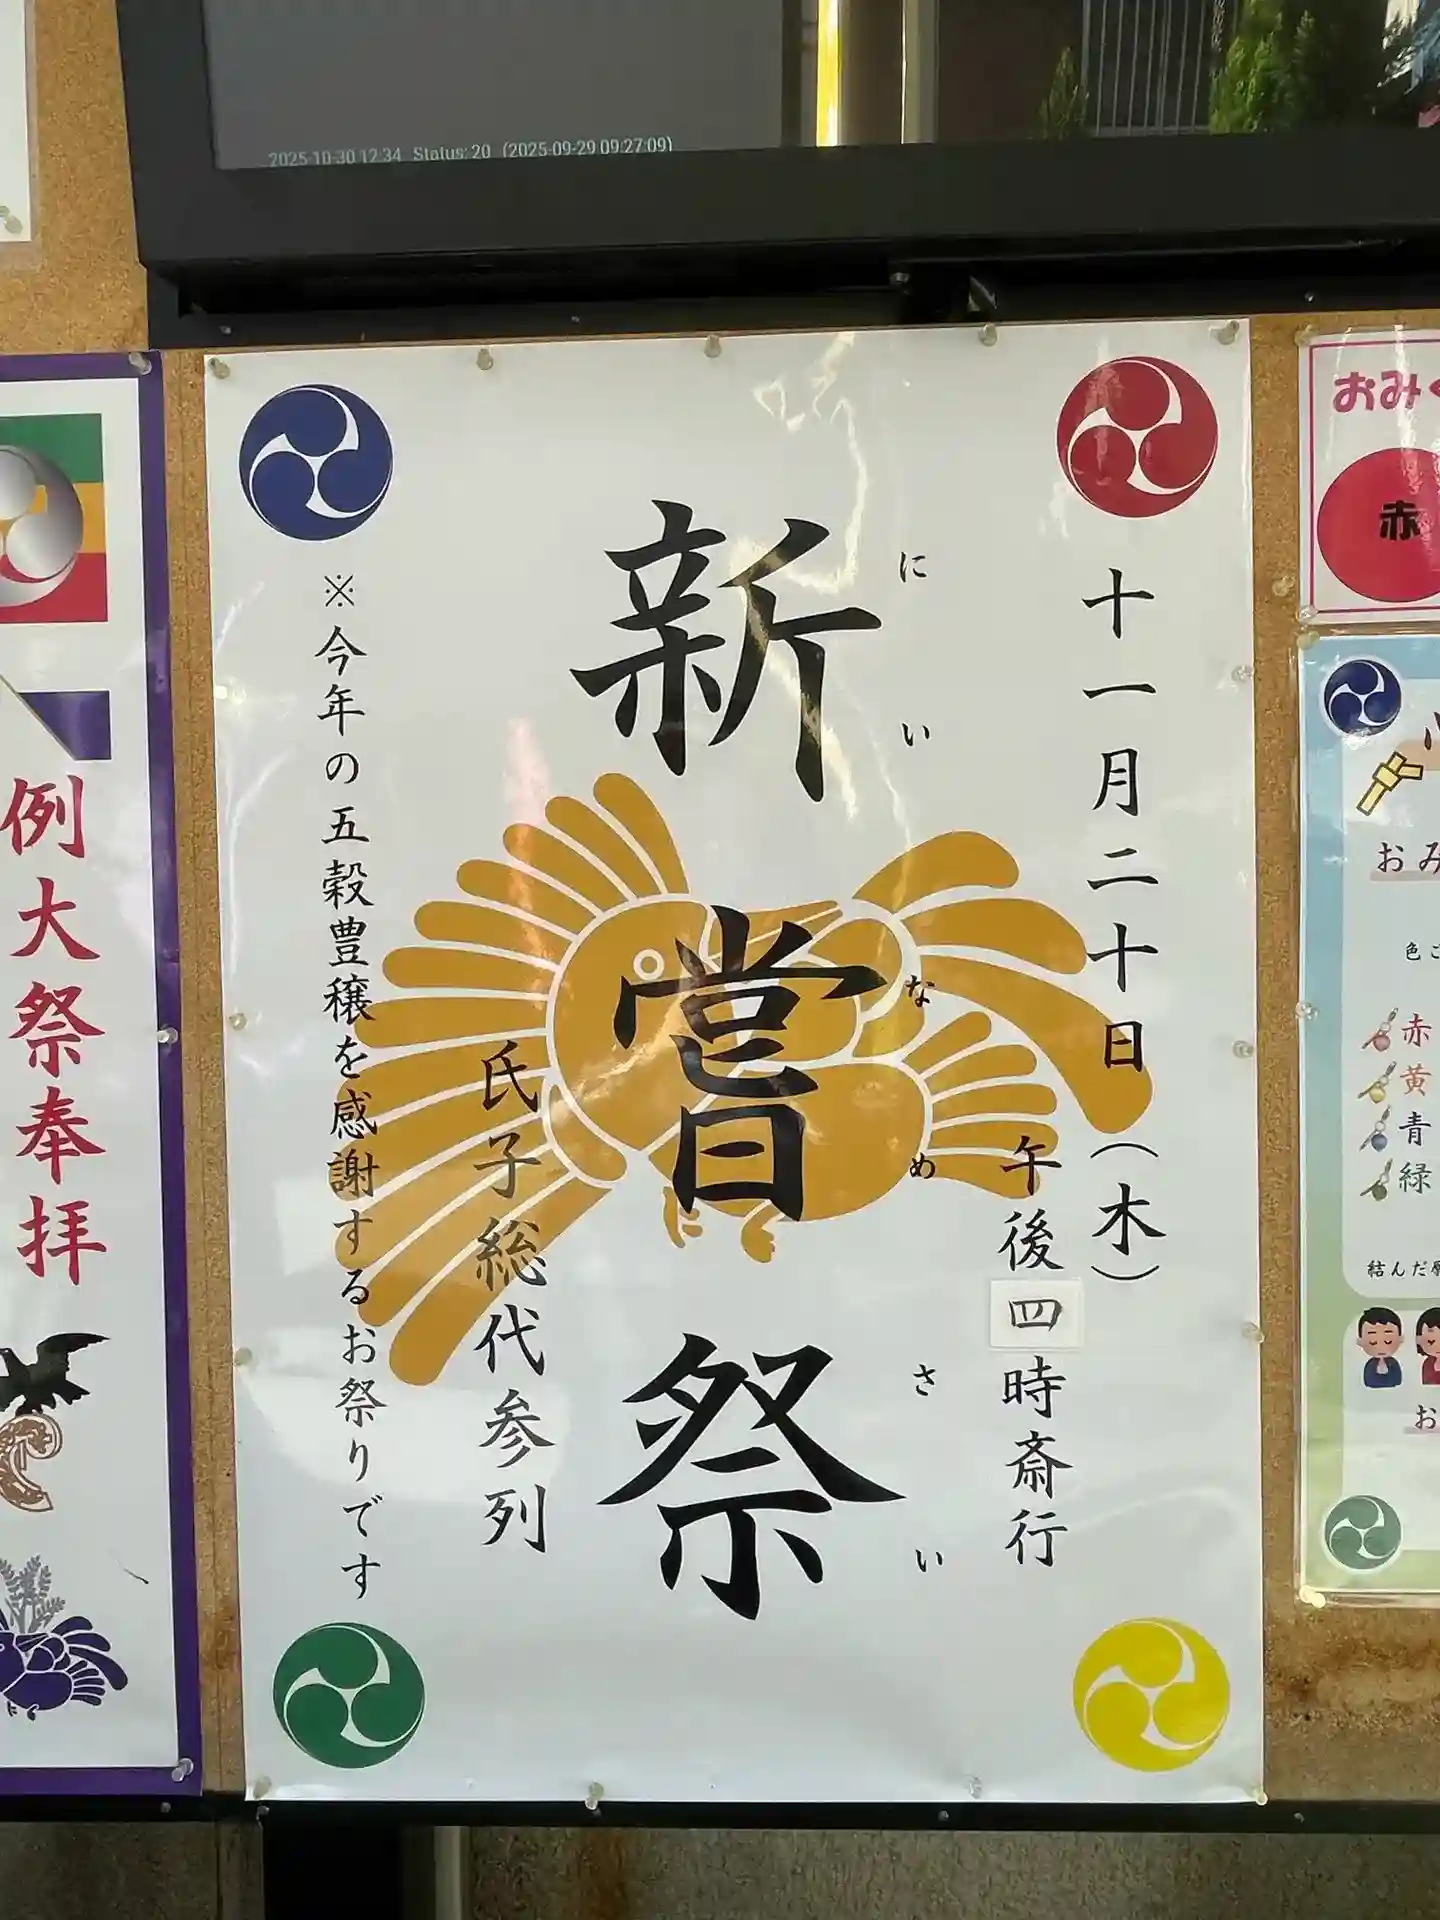 2025-10-30 12:34 Status: 20 (2025-09-29 09:27:09)
十一月二十日(木)
午後四時斎行
新嘗祭
にいなめさい
氏子総代参列
※今年の五穀豊穣を感謝するお祭りです
例大祭奉拝
おみく
赤
おみ
色ご
赤
黄
青
緑
結んだ
お